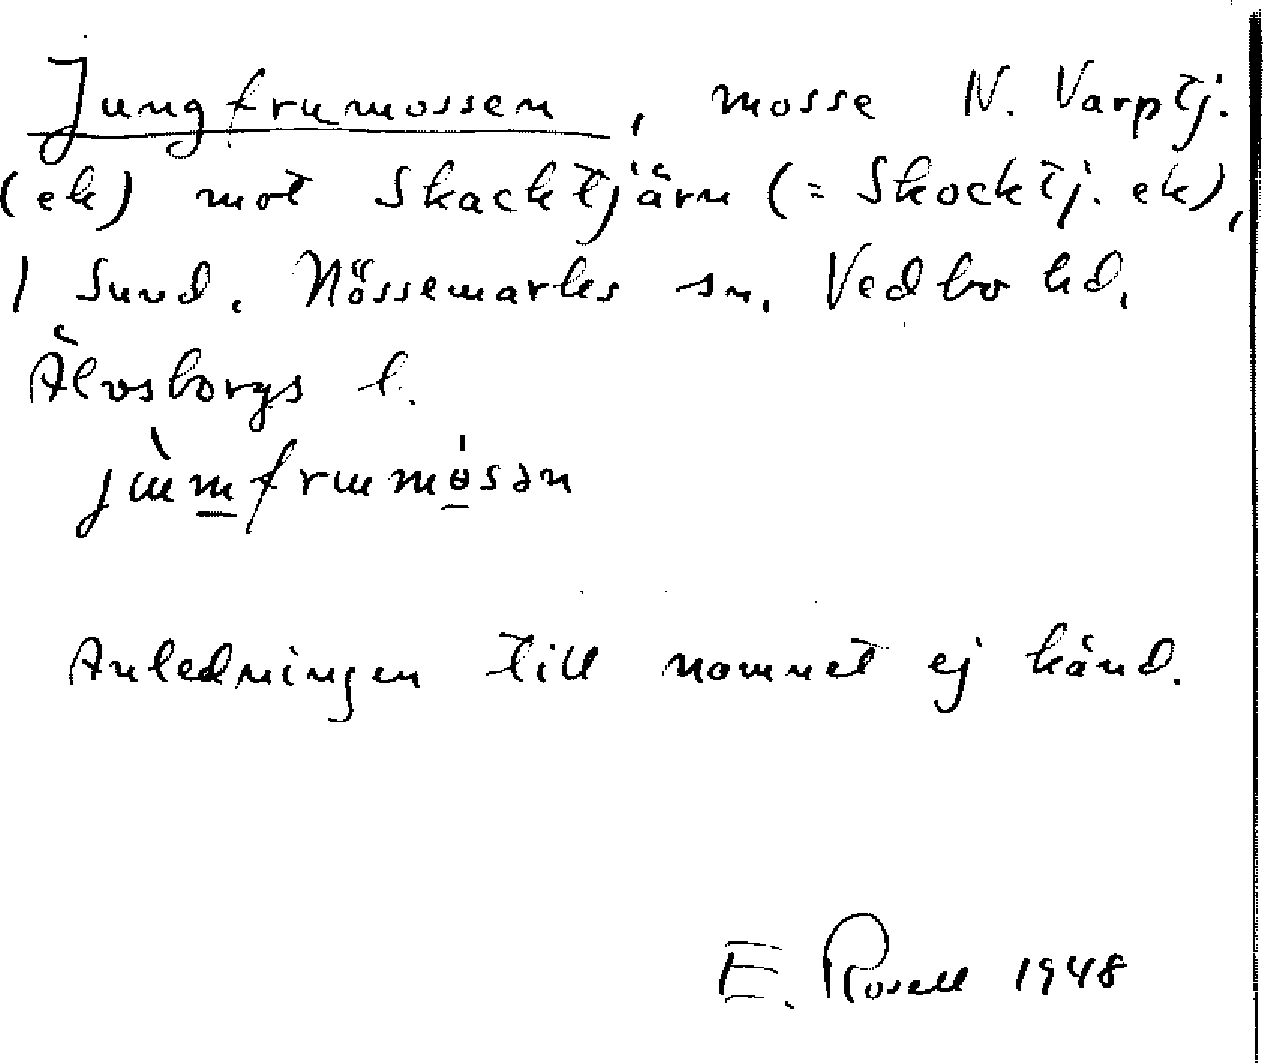 Jungfrumossen, mosse N. Varptj.
(ek) mot Skacktjärn (= Skocktj. ek),
1 Sund. Nössemarks sn. Vedbo hd.
Älvsborgs l.
jùmfrumɵ́sən
Anledningen till namnet ej känd.
E. Rosell 1948